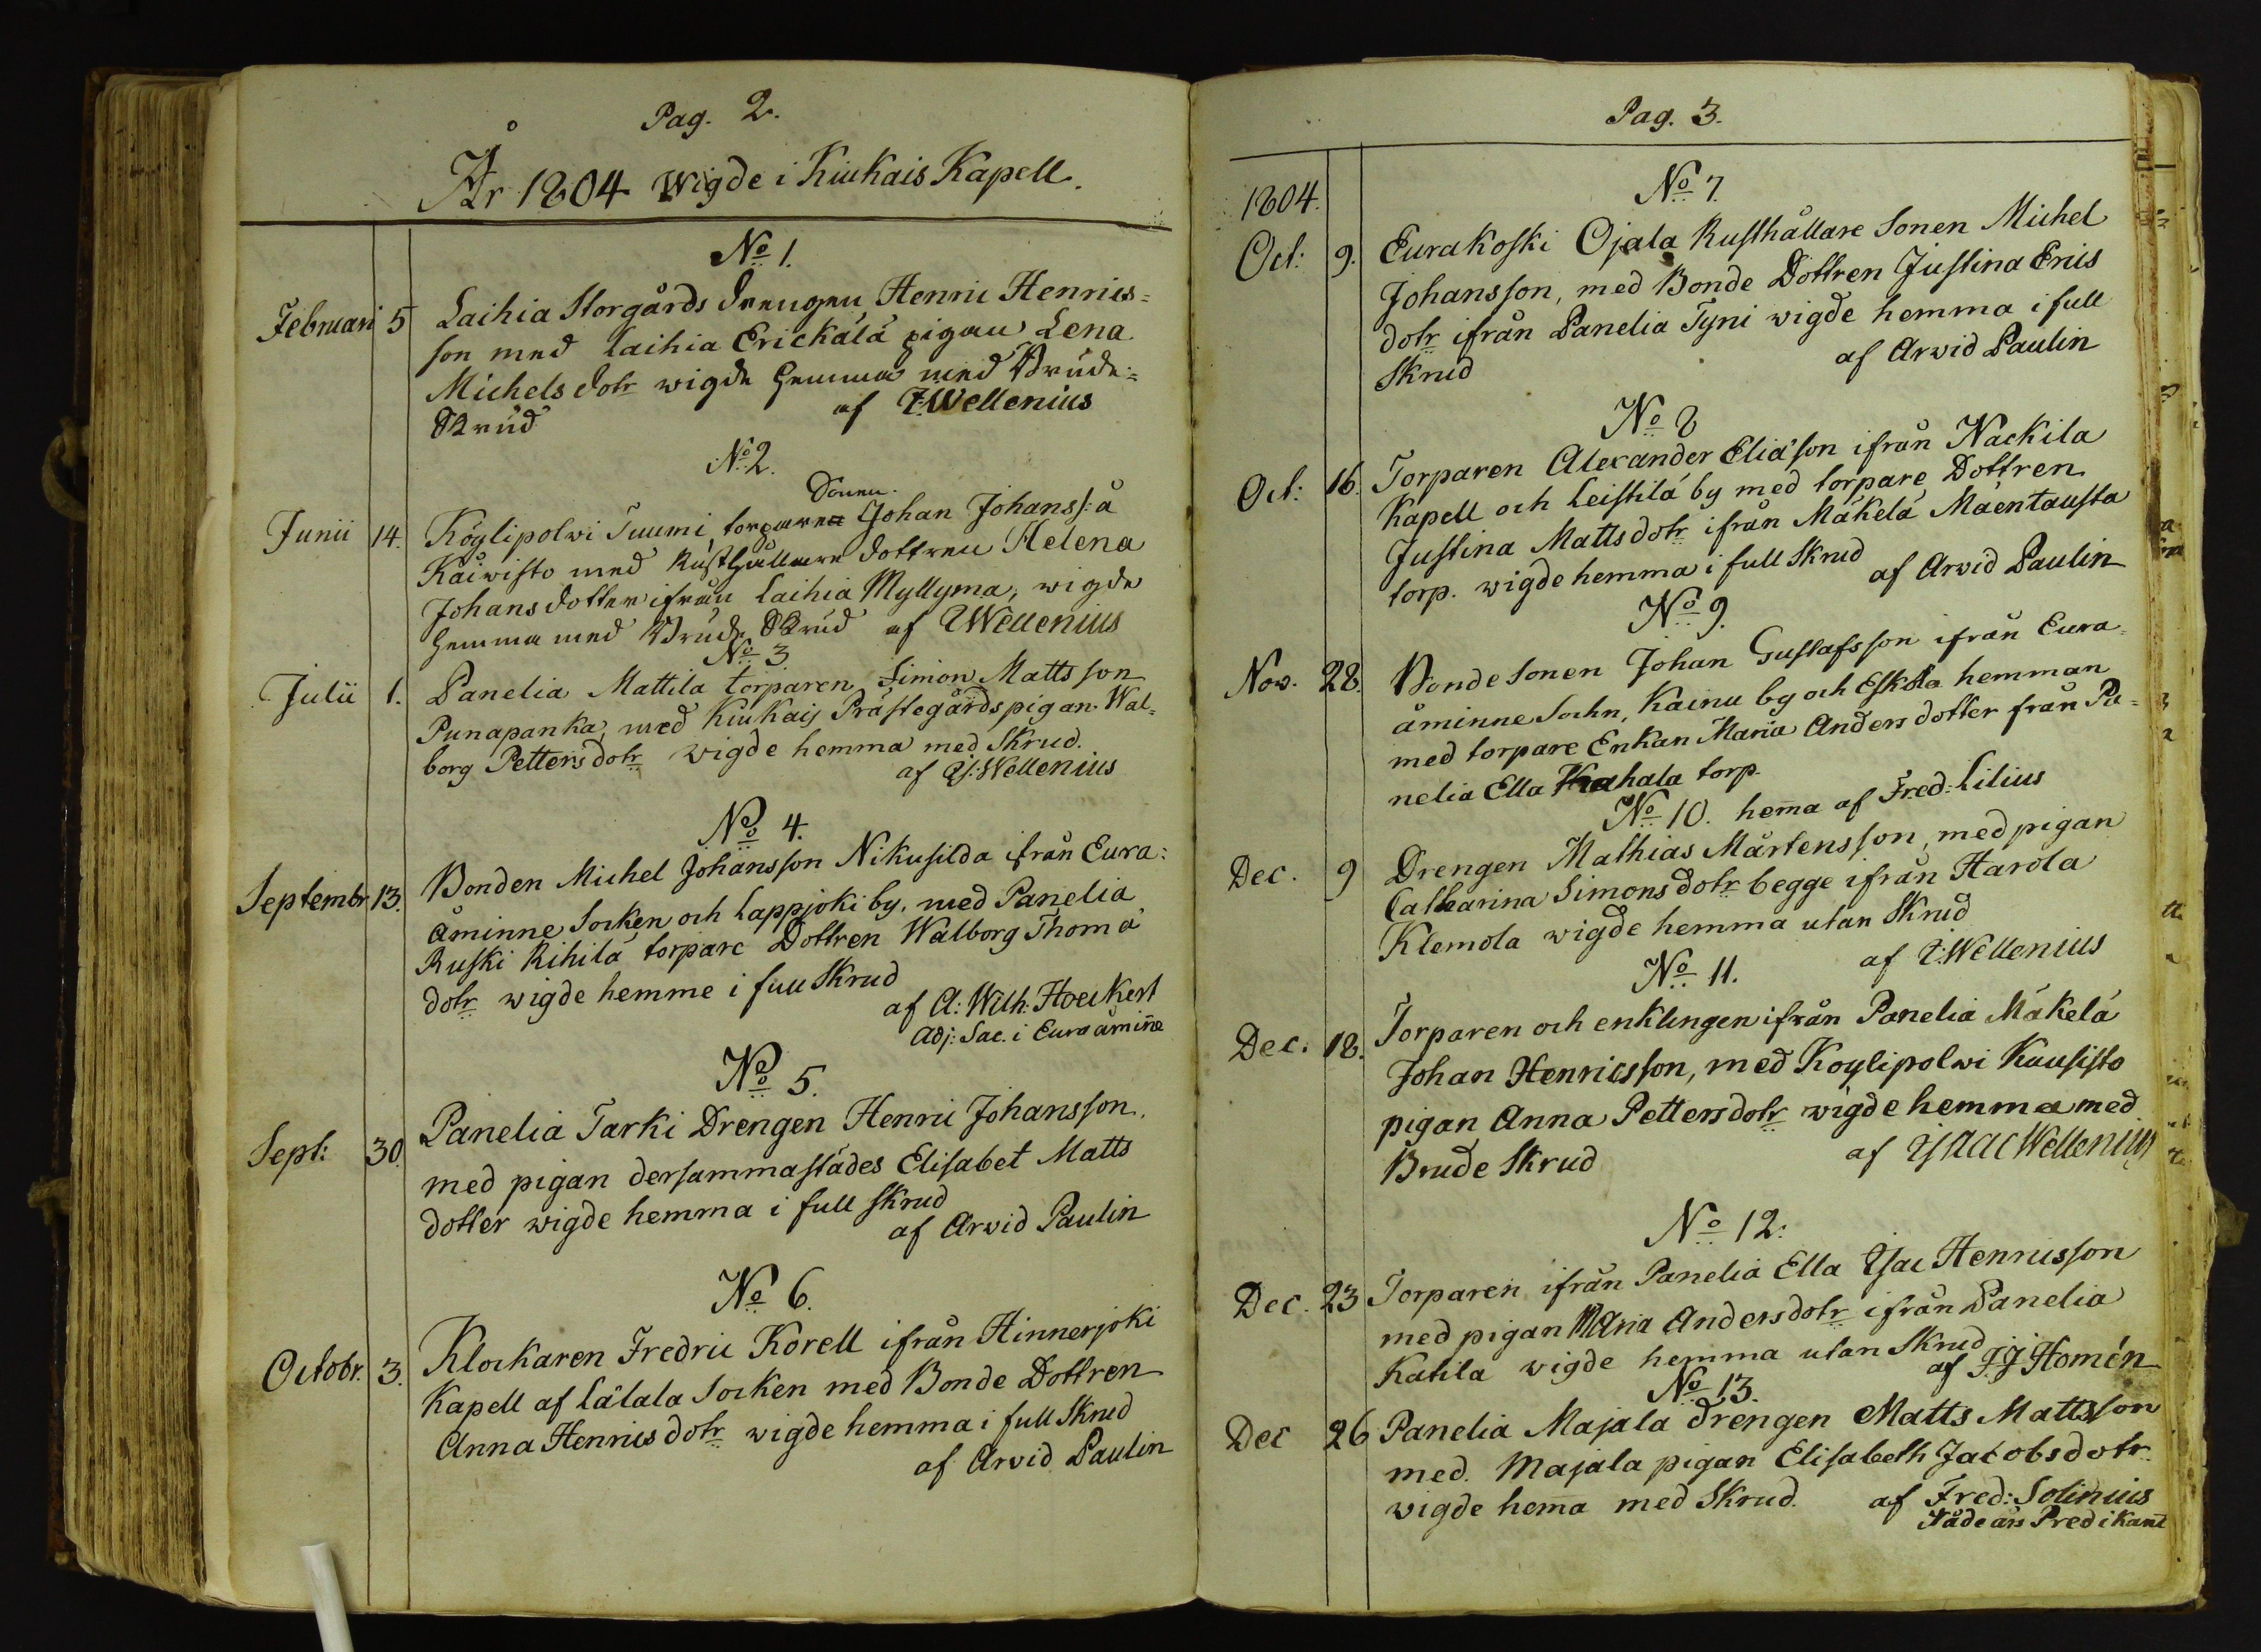 Pag. 2.
År 1804 wigde i Kiukais Kapell.
No 1.
Februari 5 Laihia Storgårds Drengen Henric Henrics=
son med Laihia Erickälä pigan Lena
Michelsdotr wigde hemma med Brude=
Skrud af I:Wellenius
No 2.
Sonen
Junii 14. Köylipolwi Tuumi torpare Johan Johanss: å
Käiwisto med Rusthållare dottren Helena
Johansdotter ifrån Laihia Myllymä, wigde
hemma med Brude Skrud af I Wellenius
No 3
Julii 1. Panelia Mattila torparen Simon Mattsson
Punapanka, med Kiukais Prästegårds pigan Wal=
borg Pettersdotr wigde hemma med Skrud.
af Is: Wellenius
No 4.
Septembr 13. Bonden Michel Johansson Nikusilda ifrån Eura:
åminne Socken och Lappjoki by, med Panelia
Ruski Rihilä torpare Dottren Walborg Thomä
dotr wigde hemme i full Skrud
af A: Wilh: Hoeckert
Adj: Sac. i Euraåmine
No 5.
Sept: 30. Panelia Tarki Drengen Henric Johansson,
med pigan dersammastädes Elisabet Matts
dotter wigde hemma i full skrud
af Arvid Paulin
No 6.
Octobr. 3. Klockaren Fredric Korell ifrån Hinnerjoki
Kapell af Lälala Socken med Bonde Dottren
Anna Henricsdotr wigde hemma i full Skrud
af Arvid Paulin
Pag. 3.
1804. No 7.
Oct: 9. Eurakoski Ojala Rusthållare Sonen Michel
Johansson, med Bonde Dottren Justina Erics
dotr ifrån Panelia Tyni wigde hemma i full
Skrud af Arvid Paulin
No 8
Oct: 16. Torparen Alexander Eliäson ifrån Nackila
Kapell och Leistilä by med torpare Dottren
Justina Mattsdotr ifrån Mäkelä Mäentausta
torp. wigde hemma i full Skrud af Arvid Paulin
No 9.
Nov. 28. Bonde Sonen Johan Gustafsson ifrån Eura=
åminne Sochn, Kainu by och Eskola hemman
med torpare Enkan Maria Andersdotter från Pa=
nelia Ella Kahala torp.
No 10. hema af Fred: Lilius
Dec. 9 Drengen Mathias Mårtensson, med pigan
Catharina Simonsdotr begge ifrån Harola
Klemola wigde hemma utan Skrud
No 11. af I:Wellenius
Dec. 18. Torparen och enklingen ifrån Panelia Mäkelä
Johan Henricsson, med Koylipolwi Kuusisto
pigan Anna Pettersdotr wigde hemma med
Brude Skrud af Isaac Wellenius
No 12:
Dec. 23 Torparen ifrån Panelia Ella Isac Henricsson
med pigan Maria Andersdotr ifrån Panelia
Katila wigde hemma utan Skrud
af J.J Homén
No 13.
Dec 26 Panelia Majala Drengen Matts Mattsson
med Majala pigan Elisabeth Jacobsdotr
wigde hema med Skrud. af Fred: Solinius
Nådeårs Predikant